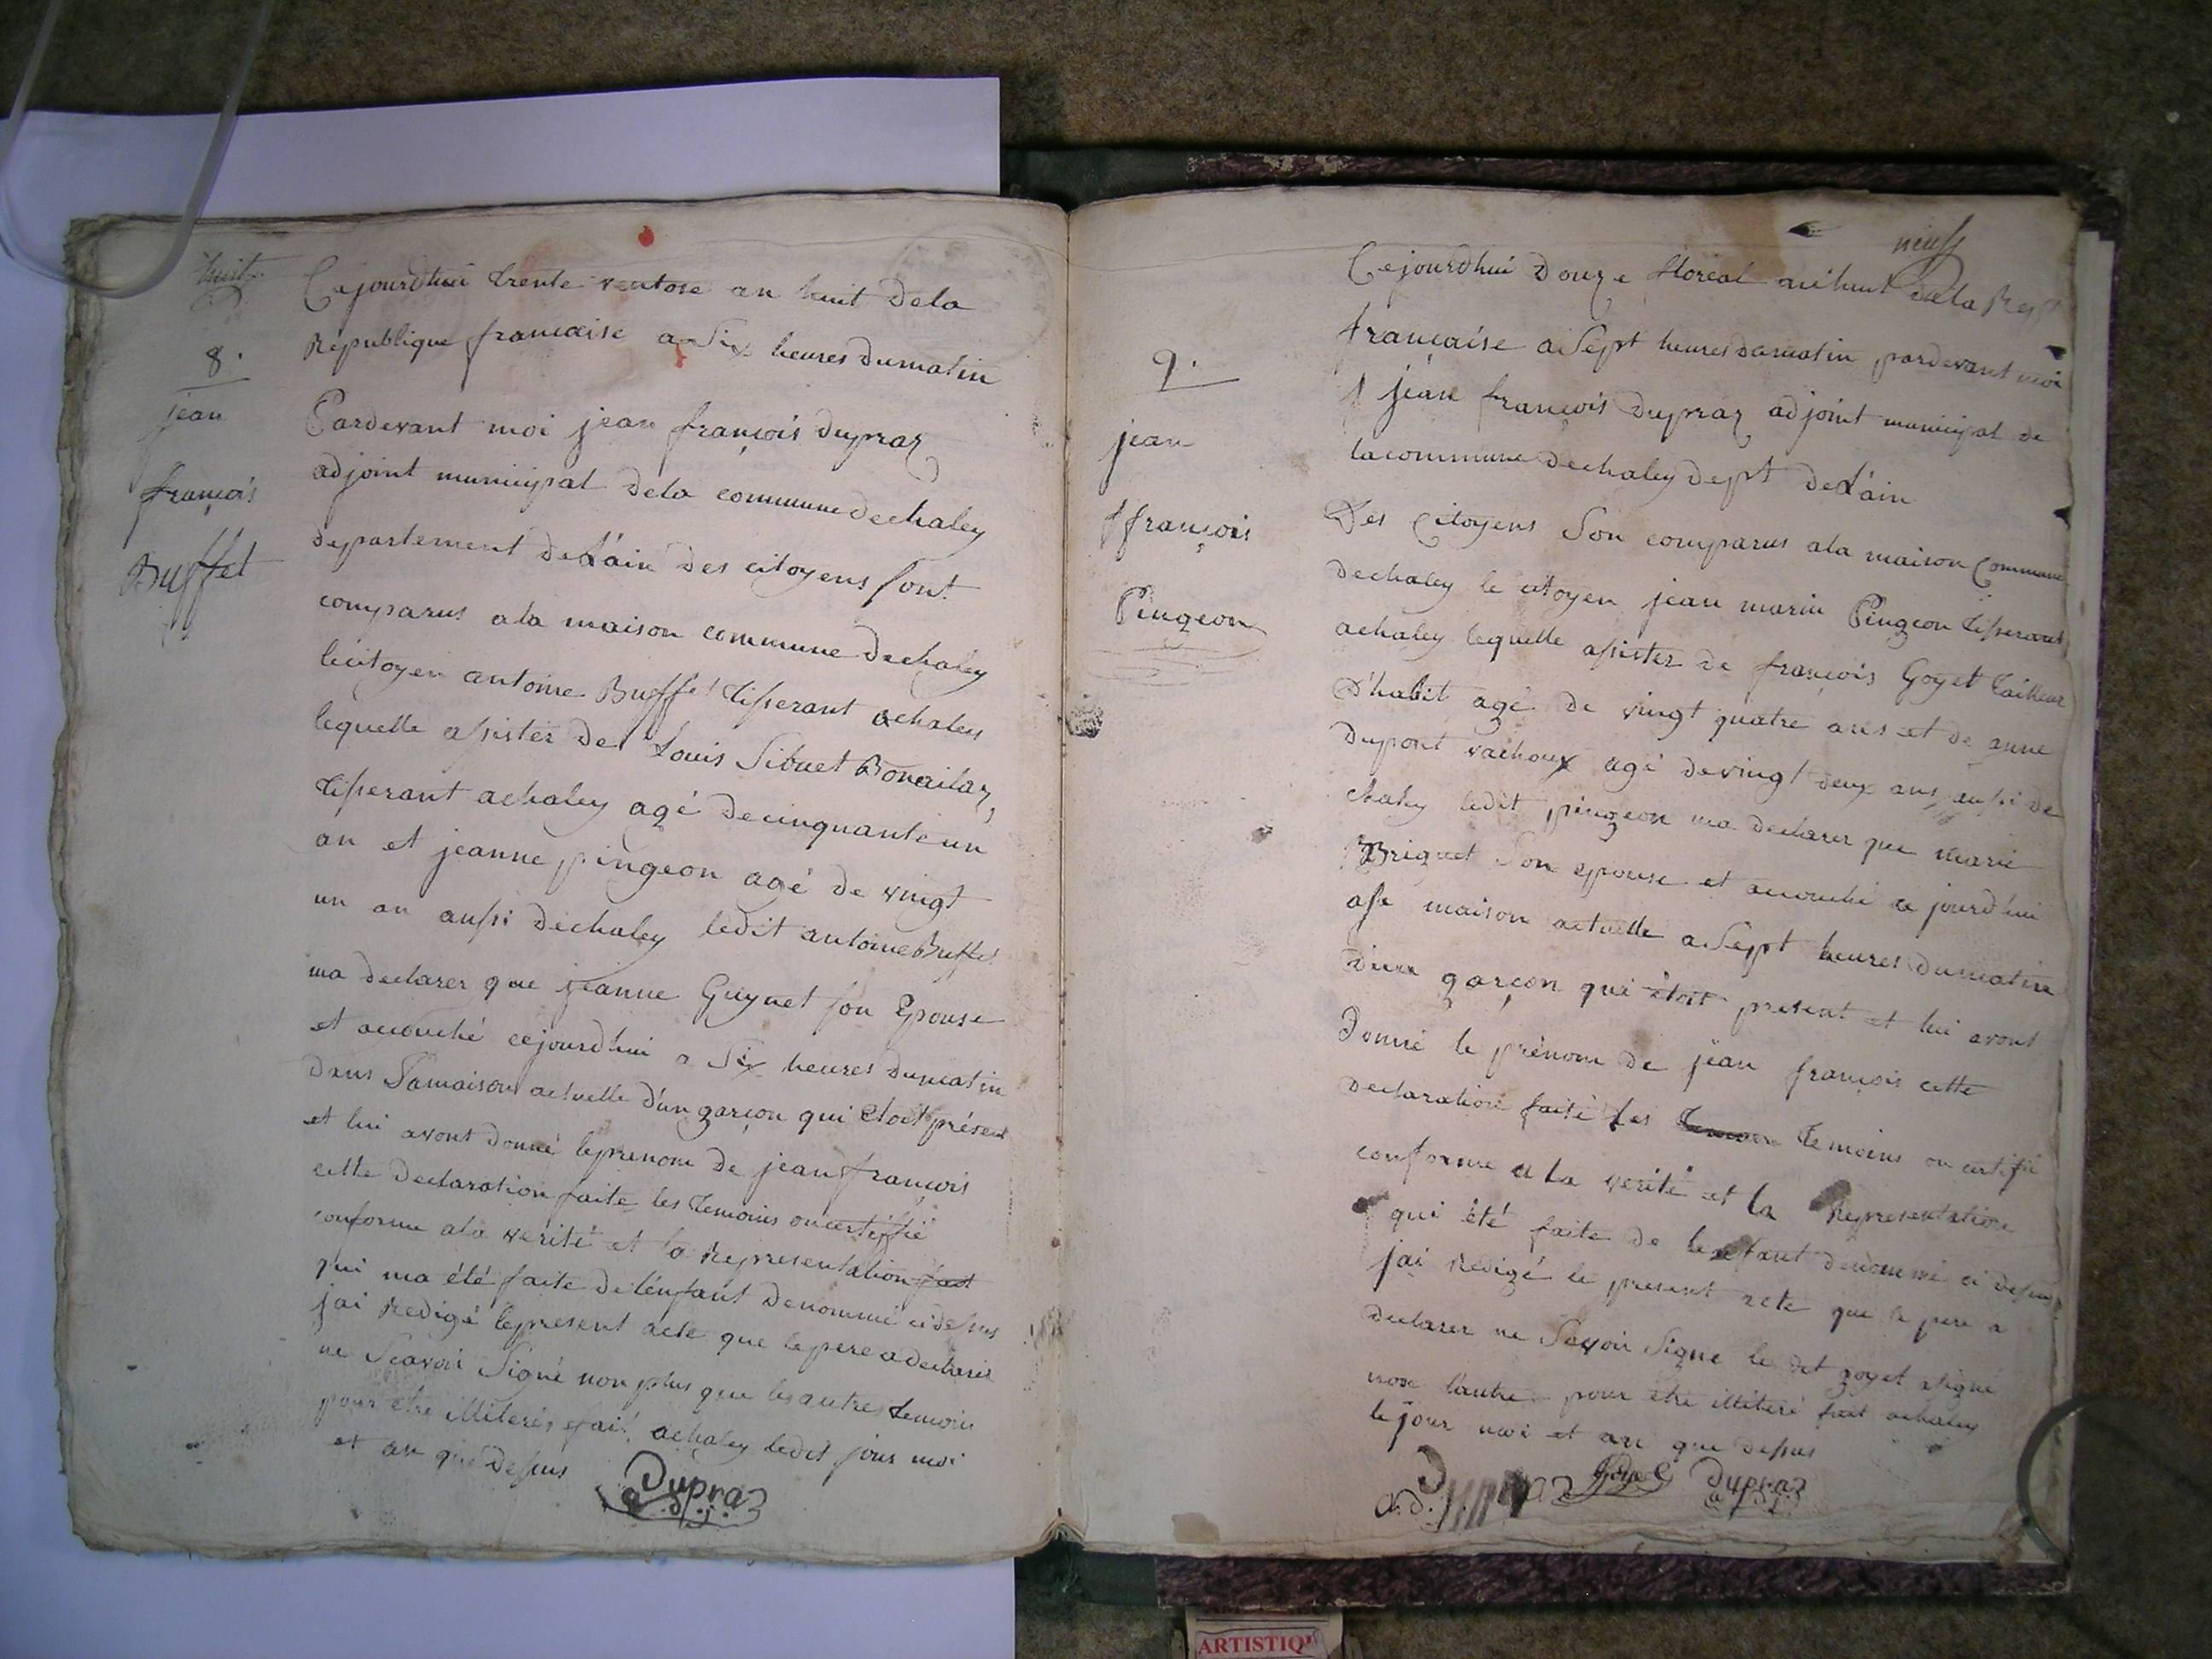 huit
8.
jean
françois
Buffet
Cejourdhui trente ventose an huit dela
Republique francaise a Six heures dumatin
Pardevant moi jean françois dupraz
adjoint municipal dela commune dechaley
departement deLain des citoyens sont
comparus ala maison commune dechaley
lecitoyen antoine Buffet tisserant achaley
lequelle assister de Louis Sibuet Bonailaz,
tisserant achaley agé decinquante un
an et jeanne pingeon agé de vingt
un an aussi dechaley ledit antoine Buffet
ma declarer que jeanne Guynet son Epouse
et accouché cejourdhui a Six heures dumatin
dans Samaison actuelle d'un garçon qui Etoit présent
et lui avont donné leprenom de jean françois
cette declaration faite les temoins oncertiffié
conforme ala verité et la Representation fait
qui ma été faite delénfant denommé cidessus
jai Redigé lepresent acte que lepere adeclarer
ne Scavoir Signé non plus que les autres temoin
pour etre illiteré, fait achaley ledit jour moi
et an que dessus
Dupraz
a d j.
neuf
9.
jean
ffrançois
Pingeon
Cejourdhui douze floreal an huit dela Rep
française a Sept heures dumatin pardevant moi
jean françois dupraz adjoint municipal de
lacommune dechaley dept deLain
Des Citoyens Son comparus ala maison Commune
dechaley le citoyen jean marin Pingeon tisserant
achaley lequelle assister de françois Goyet tailleur
d'habit agé de vingt quatre ans et de anne
dupont vachoux agé devingt deux ans aussi de
chaley ledit pingeon ma declarer que marie
Briquet Son epouse et accouché ce jourdhui
asa maison actuelle a Sept heures dumatin
d'un garçon qui étoit present et lui avont
donné le prénom de jean françois cette
declaration faite Les temoins on certifié
conforme a la verité et la Representation
qui été faite de lenfant denommé ci dessus
jai Redigé le present acte que le pere a
declarer ne Savoir Signe le dit goyet asigné
non lautre pour etre illiteré fait achaley
le jour moi et an que dessus
a.d. Dupraz Goyet Dupraz
a d j
ARTISTIQ